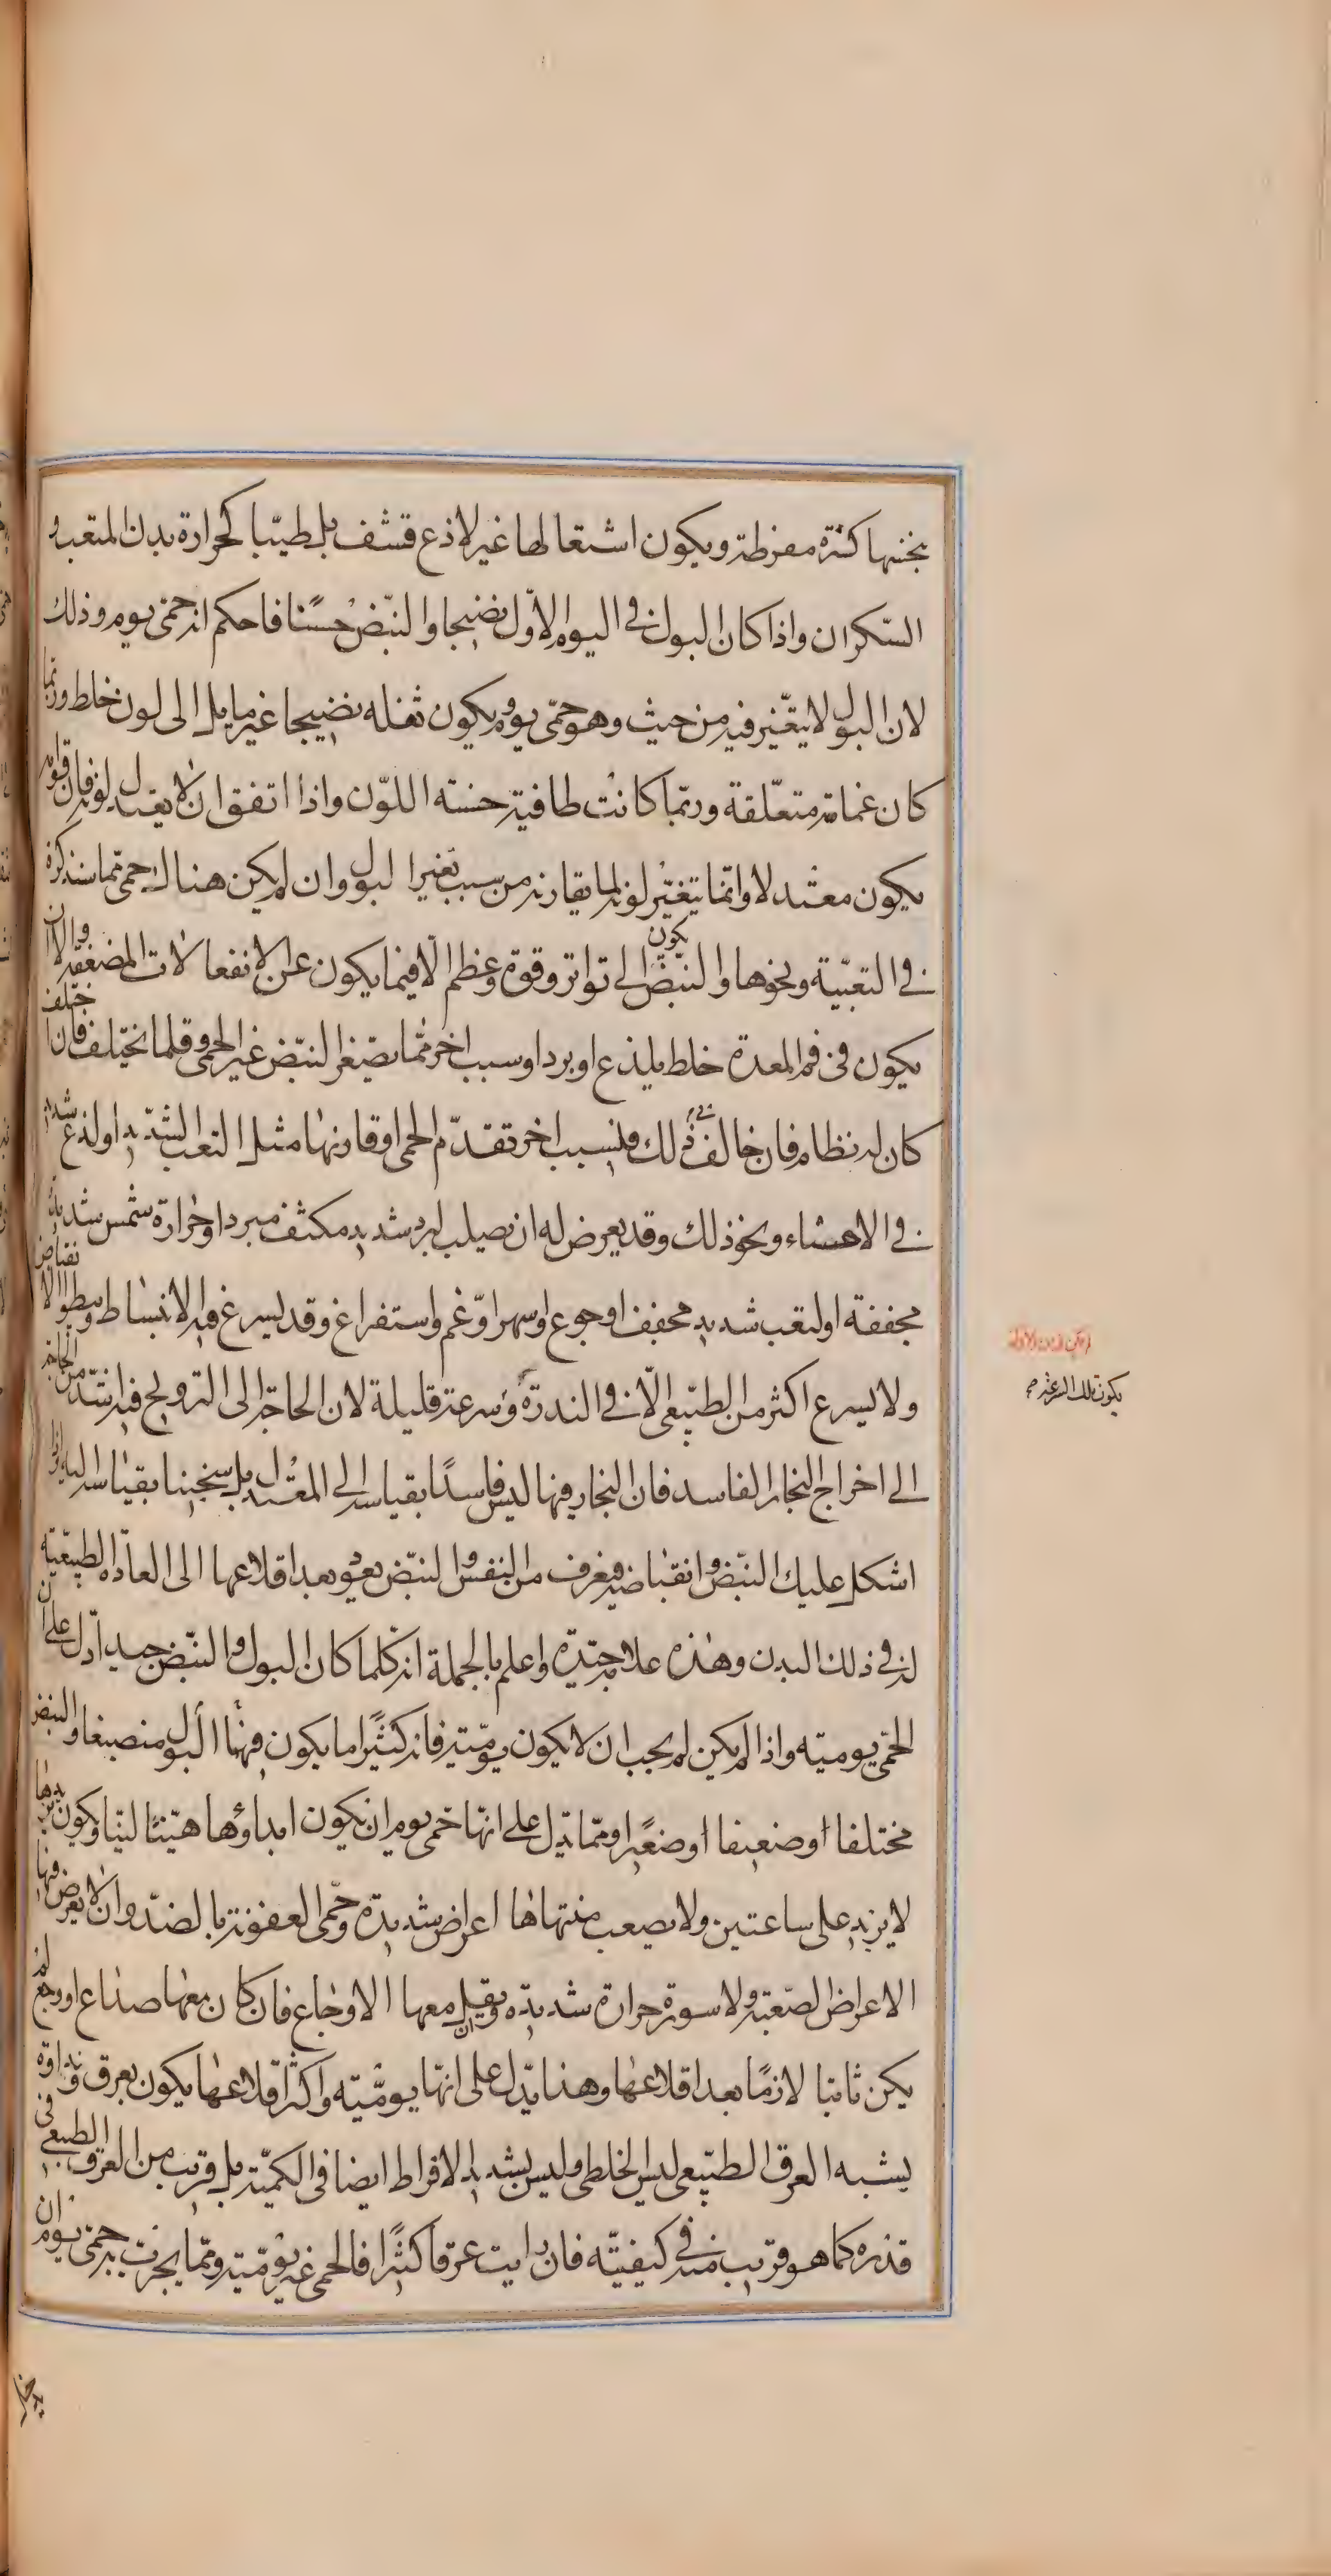 بجنبها كثرة مفرطة ويكون اشتعالها غير لاذع قشف بل طيّبا كحرارة بدن المتعب و
السّكران واذا كان البول فى اليوم الاوّل نضيجا والنّبض حسنا فاحكم انه حمّى يوم وذلك
لان البول لا يتغيّر فيه من حيث هو حمّى يوم ويكون ثفله نضيجا غير مايل الى لون خلط وربّما
كان غمامة متعلّقة وربّما كانت طافية حسنه اللوّن واذا اتفق ان لا يعتدل لونه فان قوامه
يكون معتدلا وانّما يتغيّر لونه لما يقارنه من سبب تغير البول وان لم يكن هناك حمى مما سنذكره
فى التعبيّة ونحوها والنّبض يكون الى تواتر وقوة وعظم الّا فيما يكون عن الانفعالات المضعفة والا ان
يكون فى فم المعدة خلط يلذع او برد او سبب اخر ممّا يصغر النبّض غير الحمى وقلما يختلف فان اختلف
كان له نظام فان خالف فى ذلك فلسبب اخر تقدّم الحمى او قارنها مثل التعب الشّديد او لذع شديد
فى الاحشاء ونحو ذلك وقد يعرض له ان يصلب لبرد شديد مكثف مبرد او حرارة شمس شديدة
مجففة او لتعب شديد مجفف او جوع او سهر او غم واستفراغ وقد يسرع فيه الانبساط ويبطو الانقباض
ولا يسرع اكثر من الطبّيعى الّا فى الندرة وسرعته قليلة لان الحاجة الى الترويح فيه اشدّ من الحاجة
الى اخراج البخار الفاسد فان البخار فيها ليس فاسدًا بقياسه الى المعتدل بل سخينا بقياسه اليه واذا
اشكل عليك النبّض وانقباضه فيعرف من النفس والنبّض يعود بعد اقلاعها الى العادة الطبيعّية
لزفى ذلك البدن وهذه علامة جيّدة واعلم بالجملة انه كلما كان البول والنبّض جيدا دل على ان
الحمّى يوميّه واذا لم يكن لم يجب ان لا يكون يوميّة فانه كثيًرا ما يكون فيها البول منصبغا والنبض
مختلفا او ضعيفا او صغيرا وممّا يدّل على انهّا حمّى يوم ان يكون ابداؤها هيّنّا ليّنا ويكون تزيدها
لا يزيد على ساعتين ولا يصعب منتهاها اعراض شديدة وحمّى العفونة بالضدّ وان لا يعرض فيها
الاعراض الصّعبة ولا سورة حرارة شديدة ويقل معها الاوجاع فان كان معها صداع او وجع لم
يكن ثابتا لازمًا بعد اقلاعها وهذا يدّل على انهّا يوميّه واكثر اقلاعها يكون بعرق ونداوة
يشبه العرق الطبّيعى ليس الخلطى وليس بشديد الافراط ايضا فى الكميّة بل قريب من العرق الطبيعى فى
قدره كما هو قريب منه فى كيفيّته فان رايت عرقا كثيًرا فالحمى غير يوميّة وممّا يجرب به حمّى يوم ان
يكون تلك السرعة صح
يدخل